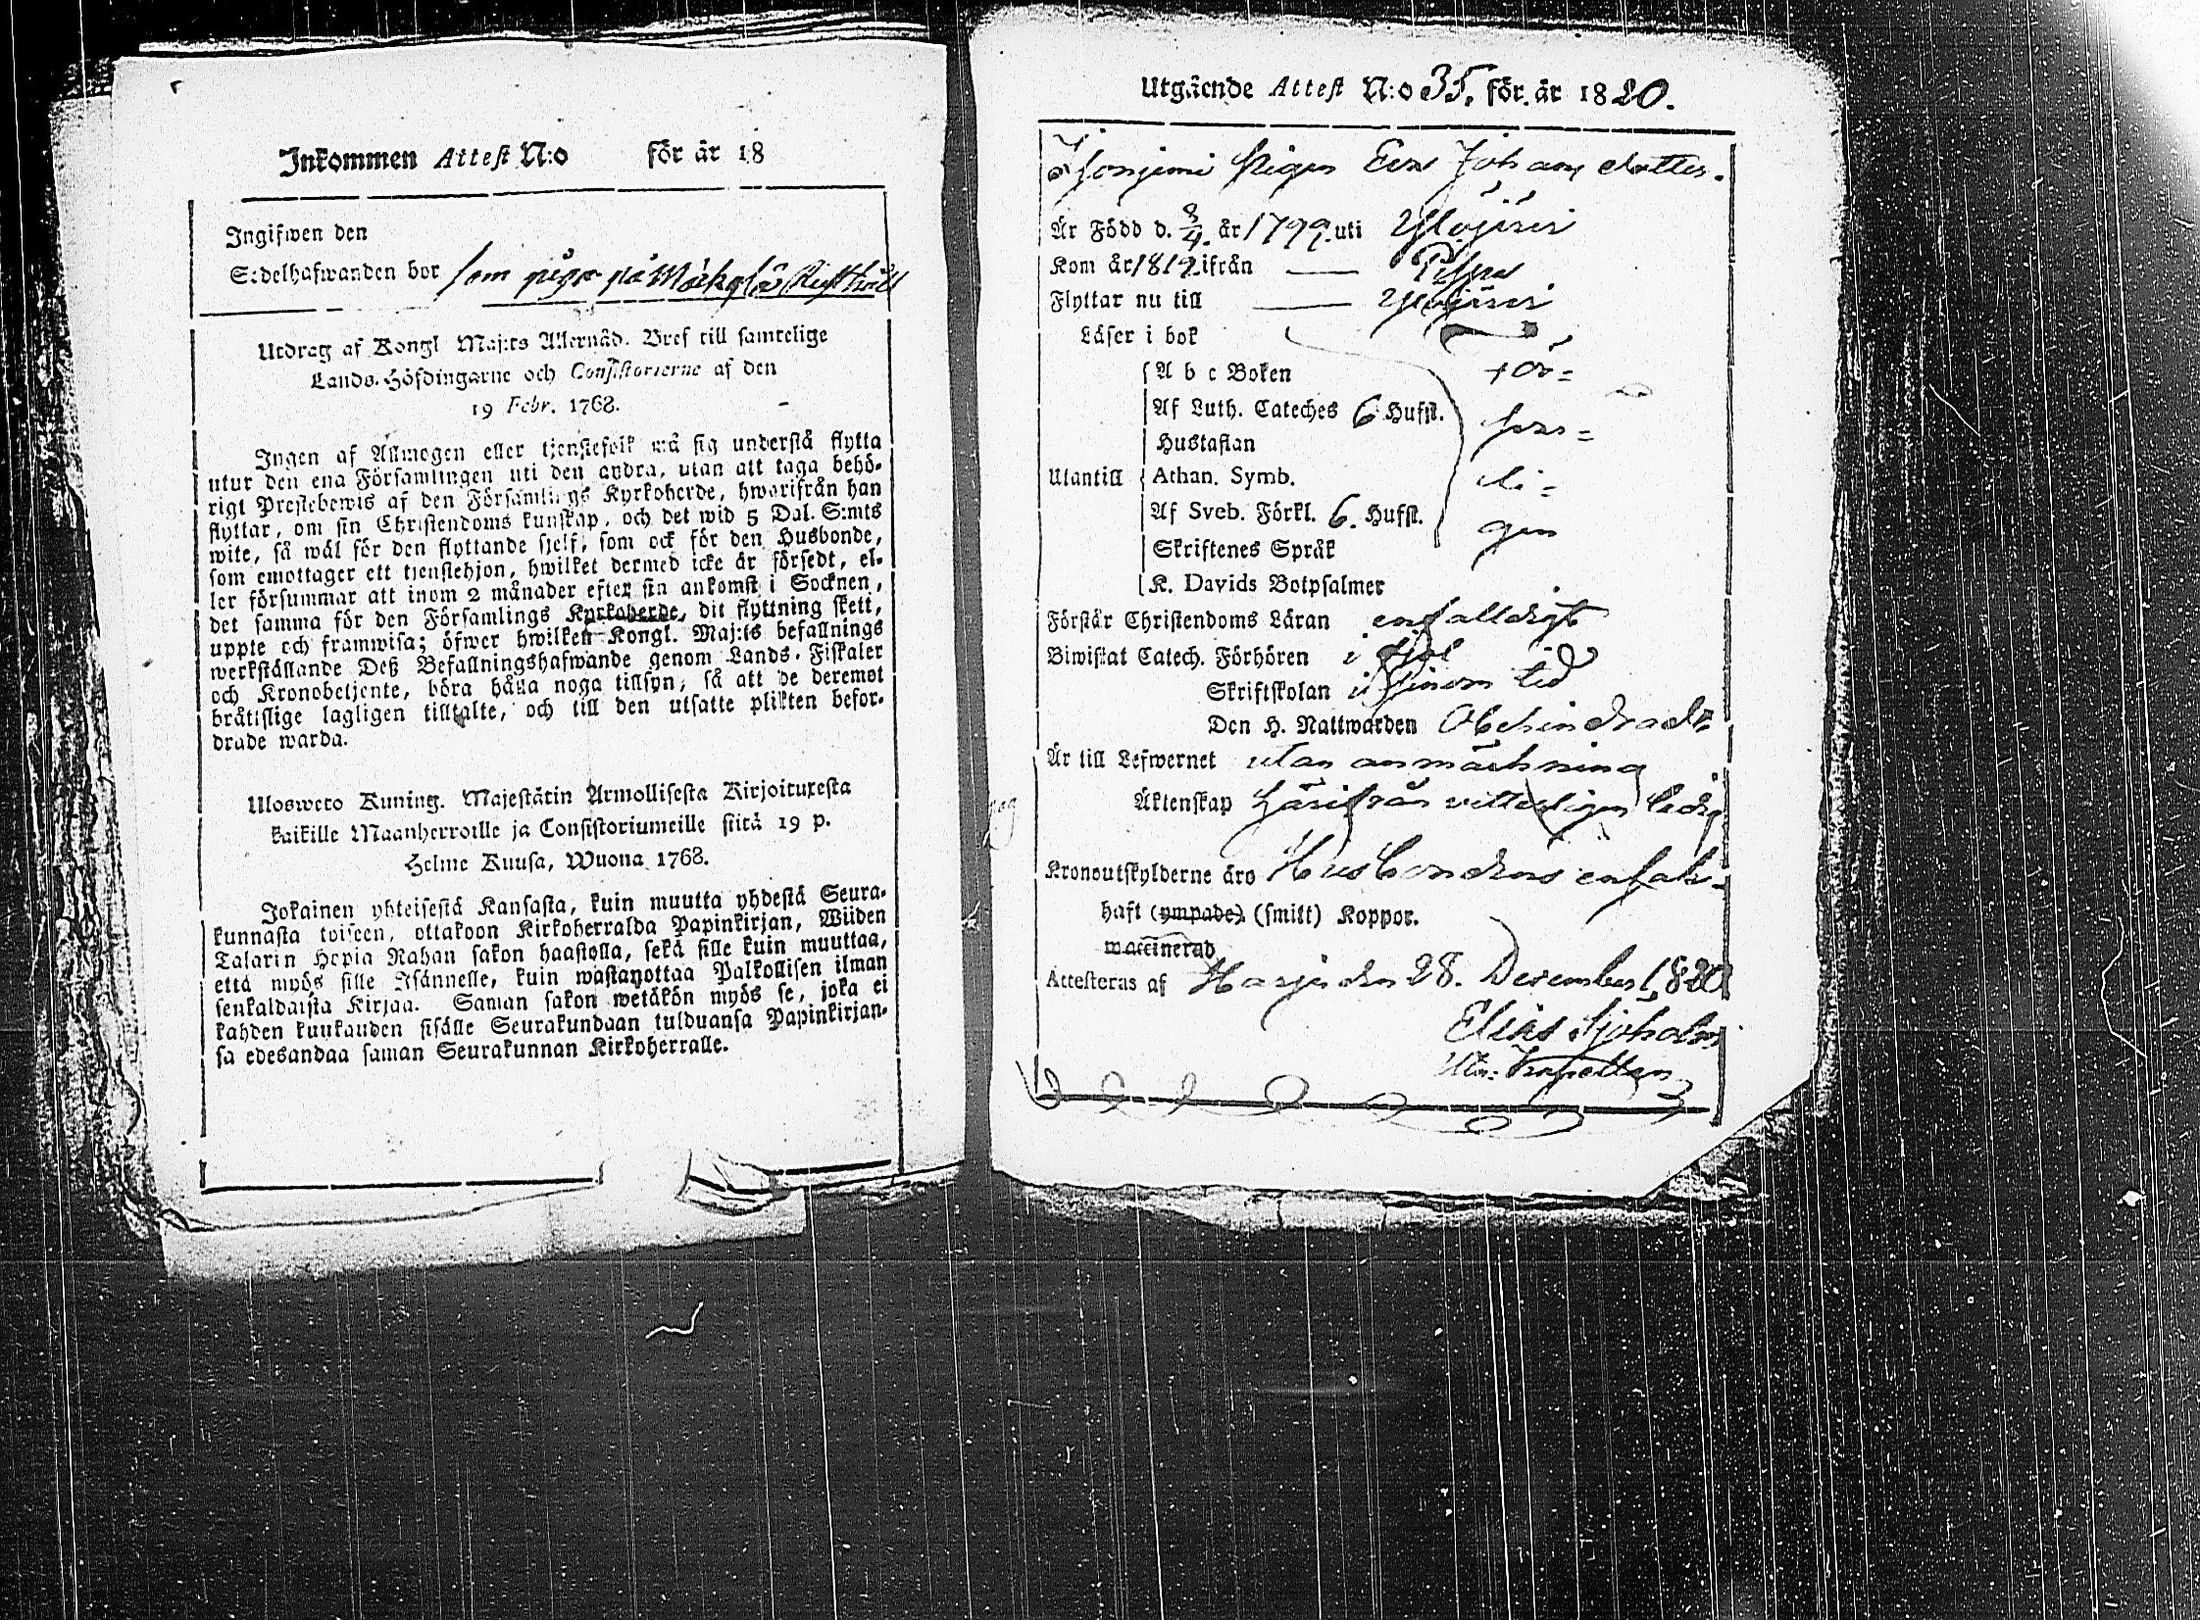 Inkommen Attest N:o för år 18
Ingifwen den
S:delhafwanden bor som piga på Rusthåll
Utdrag af Kongl Maj:ts Allernåd. Bref till samtelige
Lands-Höfdingarne och Consistorierne af den
19 Febr. 1768.
Ingen af Allmogen eller tjenstefolk må sig understå flytta
utur den ena Församlingen uti den andra, utan att taga behö-
rigt Prestebewis af den Församlings Kyrkoherde, hwarifrån han
flyttar, om sin Christendoms kunskap, och det wid 5 Dal. S:mts
wite, så wäl för den flyttande sjelf, som ock för den Husbonde,
som emottager ett tjenstehjon, hwilket dermed icke är försedt, el-
ler försummar att inom 2 månader efter sin ankomst i Socknen,
det samma för den Församlings Kyrkoherde, dit flyttning skett,
uppte och framwisa; öfwer hwilken Kongl. Maj:ts befallnings
werkställande Deß Befallningshafwande genom Lands-Fiskaler
och Kronobetjente, böra hålla noga tillsyn, så att de deremot
bråtislige lagligen tilltalte, och till den utsatte plikten befor-
drade warda.
Ulosweto Kuning. Majestätin Armollisesta Kirjoituxesta
kaikille Maanherroille ja Consistoriumeille siitä 19 p.
Helme Kuusa, Wuona 1768.
Jokainen yhteisestä Kansasta, kuin muutta yhdestä Seura-
kunnasta toiseen, ottakoon Kirkoherralda Papinkirjan, Wiiden
Talarin Hopia Rahan sakon haastolla, sekä sille kuin muuttaa,
että myös sille Isännelle, kuin wastanottaa Palkollisen ilman
senkaldaista Kirjaa. Saman sakon wetäkön myös se, joka ei
kahden kuukauden sisälle Seurakundaan tulduansa Papinkirjan-
sa edesandaa saman Seurakunnan Kirkoherralle.
Utgående Attest N:o 35. för år 1820.
Pigan Eva Johans dotter.
Är Född d. 8/4. år 1799. uti Ylöjärvi
Kom år 1819. ifrån — Pispa
Flyttar nu till — Ylöjärvi
Läser i bok
A b c Boken för=
Af Luth. Cateches 6 Hufst.
Hustaflan svar=
Utantill Athan. Symb. li=
Af Sveb. Förkl. 6. Hufst. gen
Skriftenes Språk
K. Davids Botpsalmer
Förstår Christendoms Läran enfalldigt
Biwistat Catech. Förhören i
Skriftskolan i sinom tid
Den H. Nattwarden Obehindrad
Är till Lefwernet utan anmärkning
Äktenskap Härifrån vitterligen ledig
Kronoutskylderne äro Husbondens ensak.
haft (ympade) (smitt) Koppor.
waccinerad
Attesteras af Harju den 28. December 1820
Elias Sjöholm